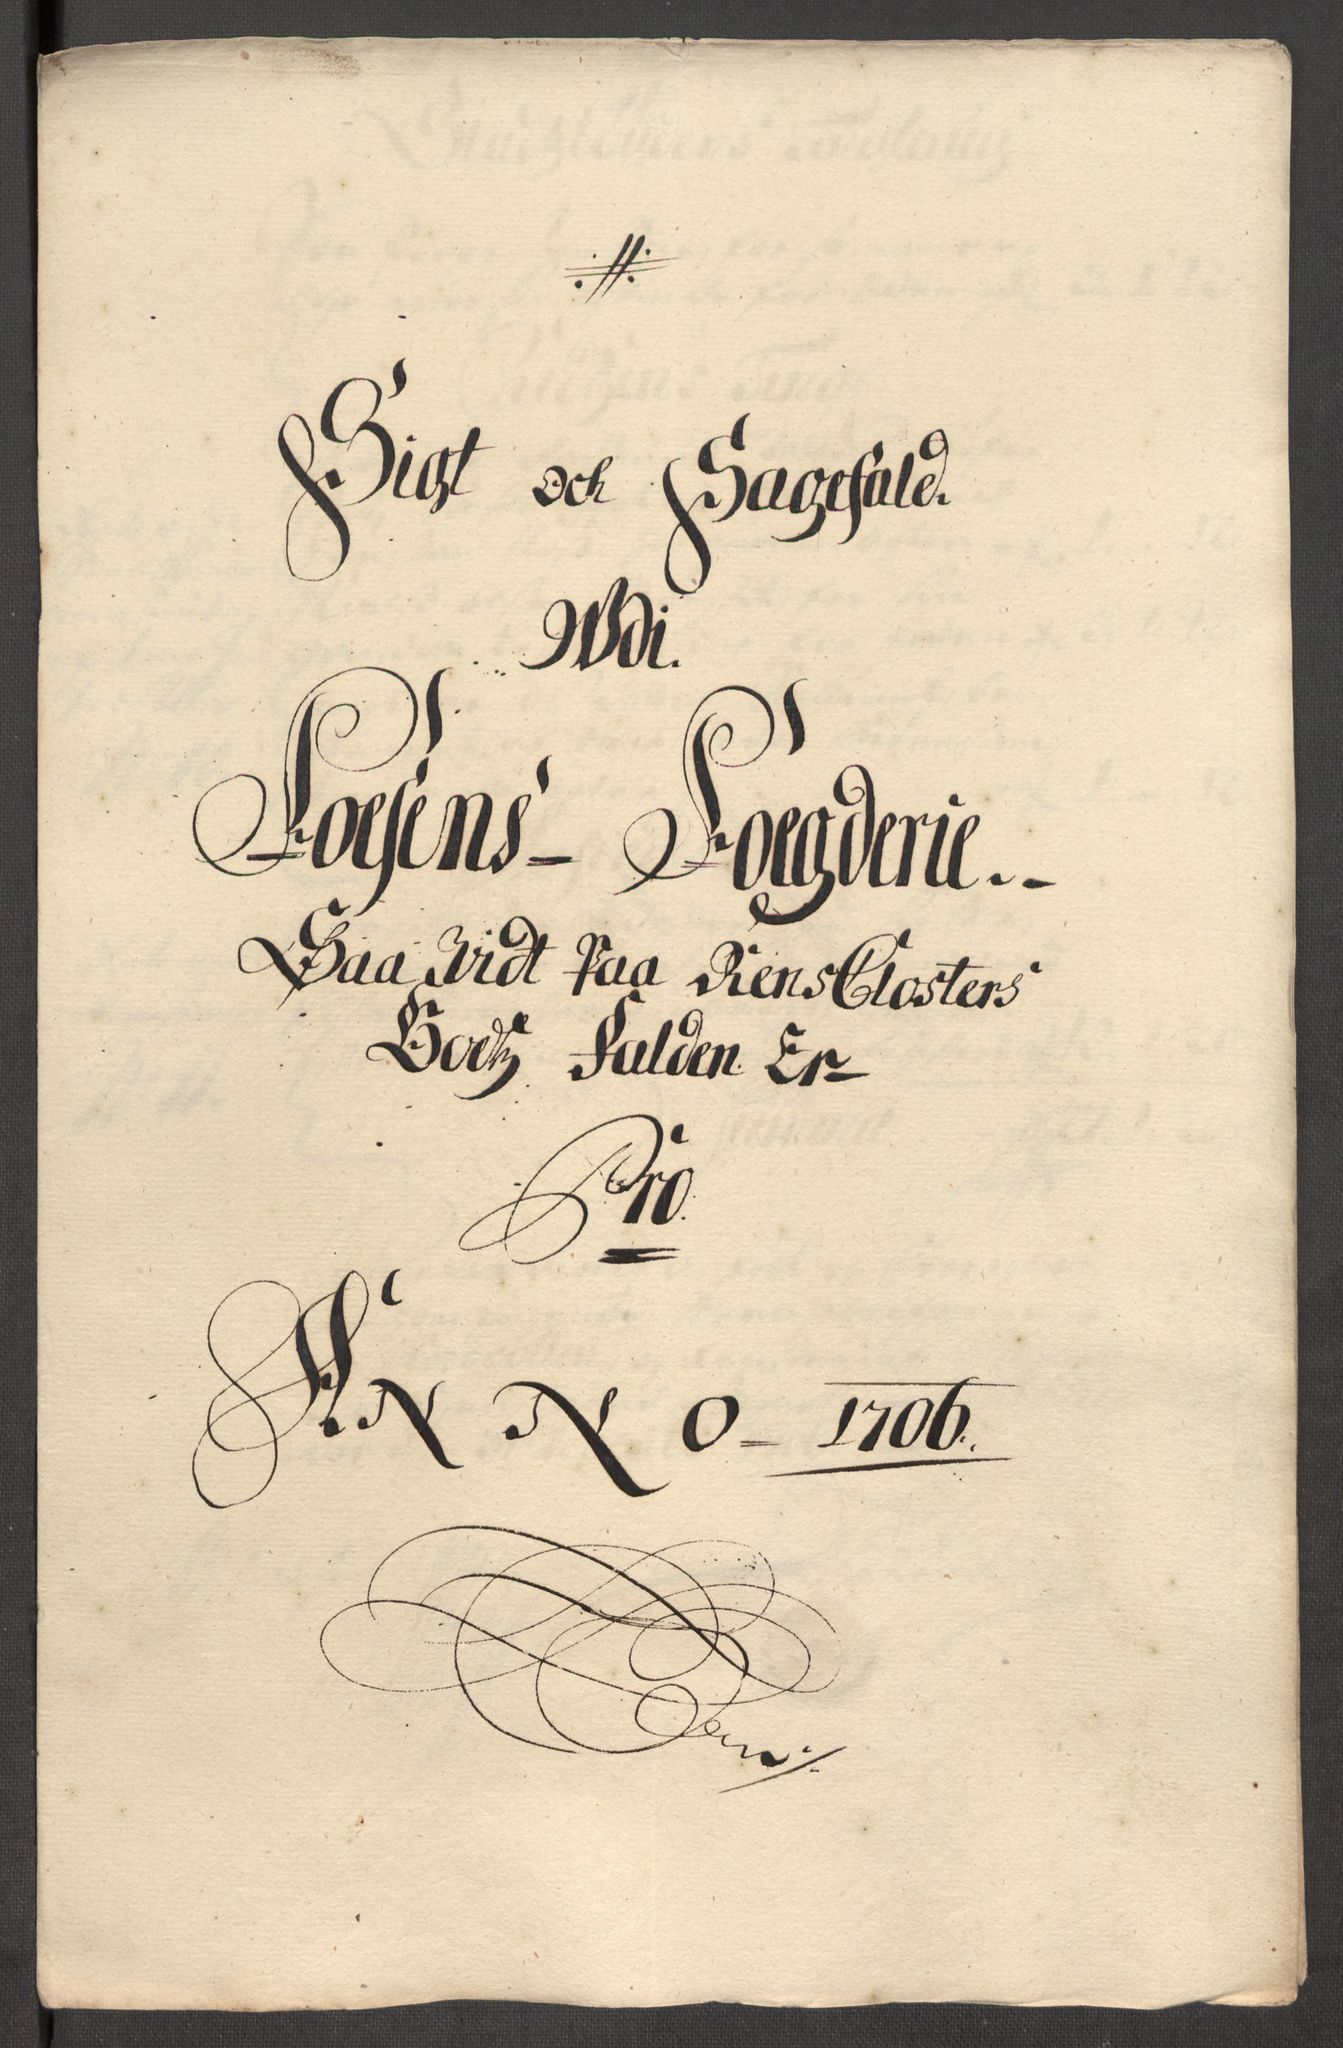 Sigt och Sagefald.
Wdi.
Fosens- Foegderie.
Saa Vidt Paa Riens Closters
Godtz Falden Er
Pro.
ANNO- 1706.